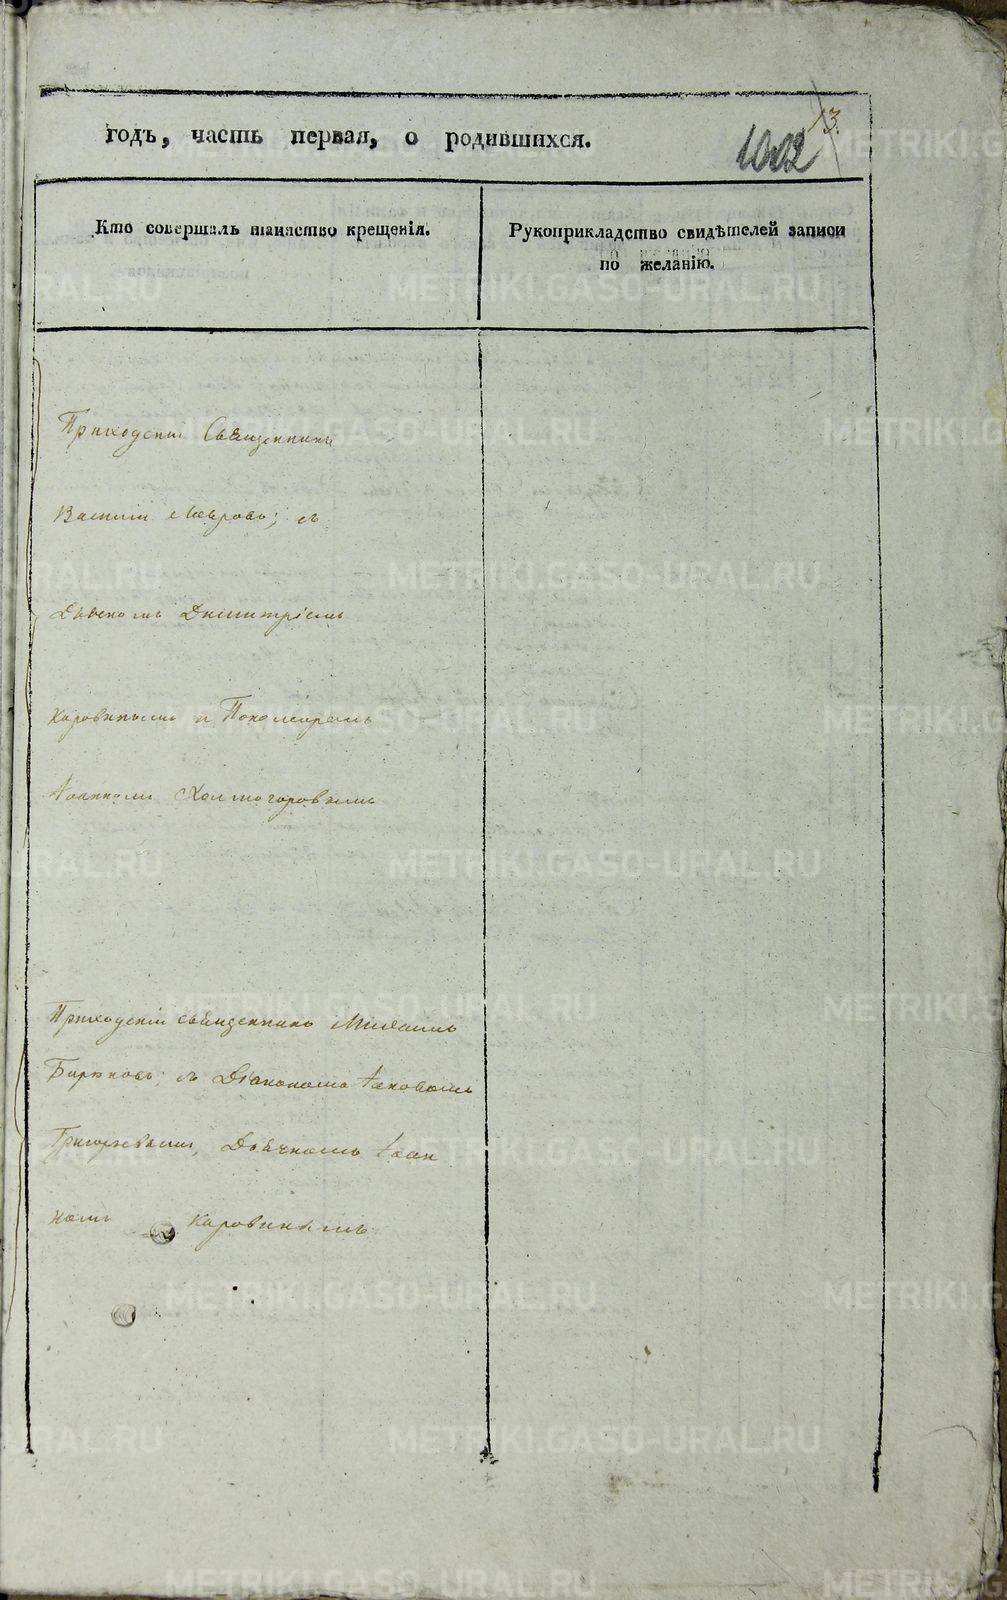 13.
годъ, часть первая, о родившихся.
1002
Кто совершалъ таинство крещенія.
Рукоприкладство свидѣтелей записи
по желанію.
Приходскій Священникъ
Василій Лавровъ; съ
Дьячкомъ Димитріемъ
Каровинымъ и Пономаремъ
Іоанномъ Холмогоровымъ
Приходскій священникъ Михаилъ
Бирюковъ; съ Діакономъ Іаковомъ
Григорьевымъ, Дьячкомъ Іоан
номъ Каровинымъ
METRIKI.GASO-URAL.RU